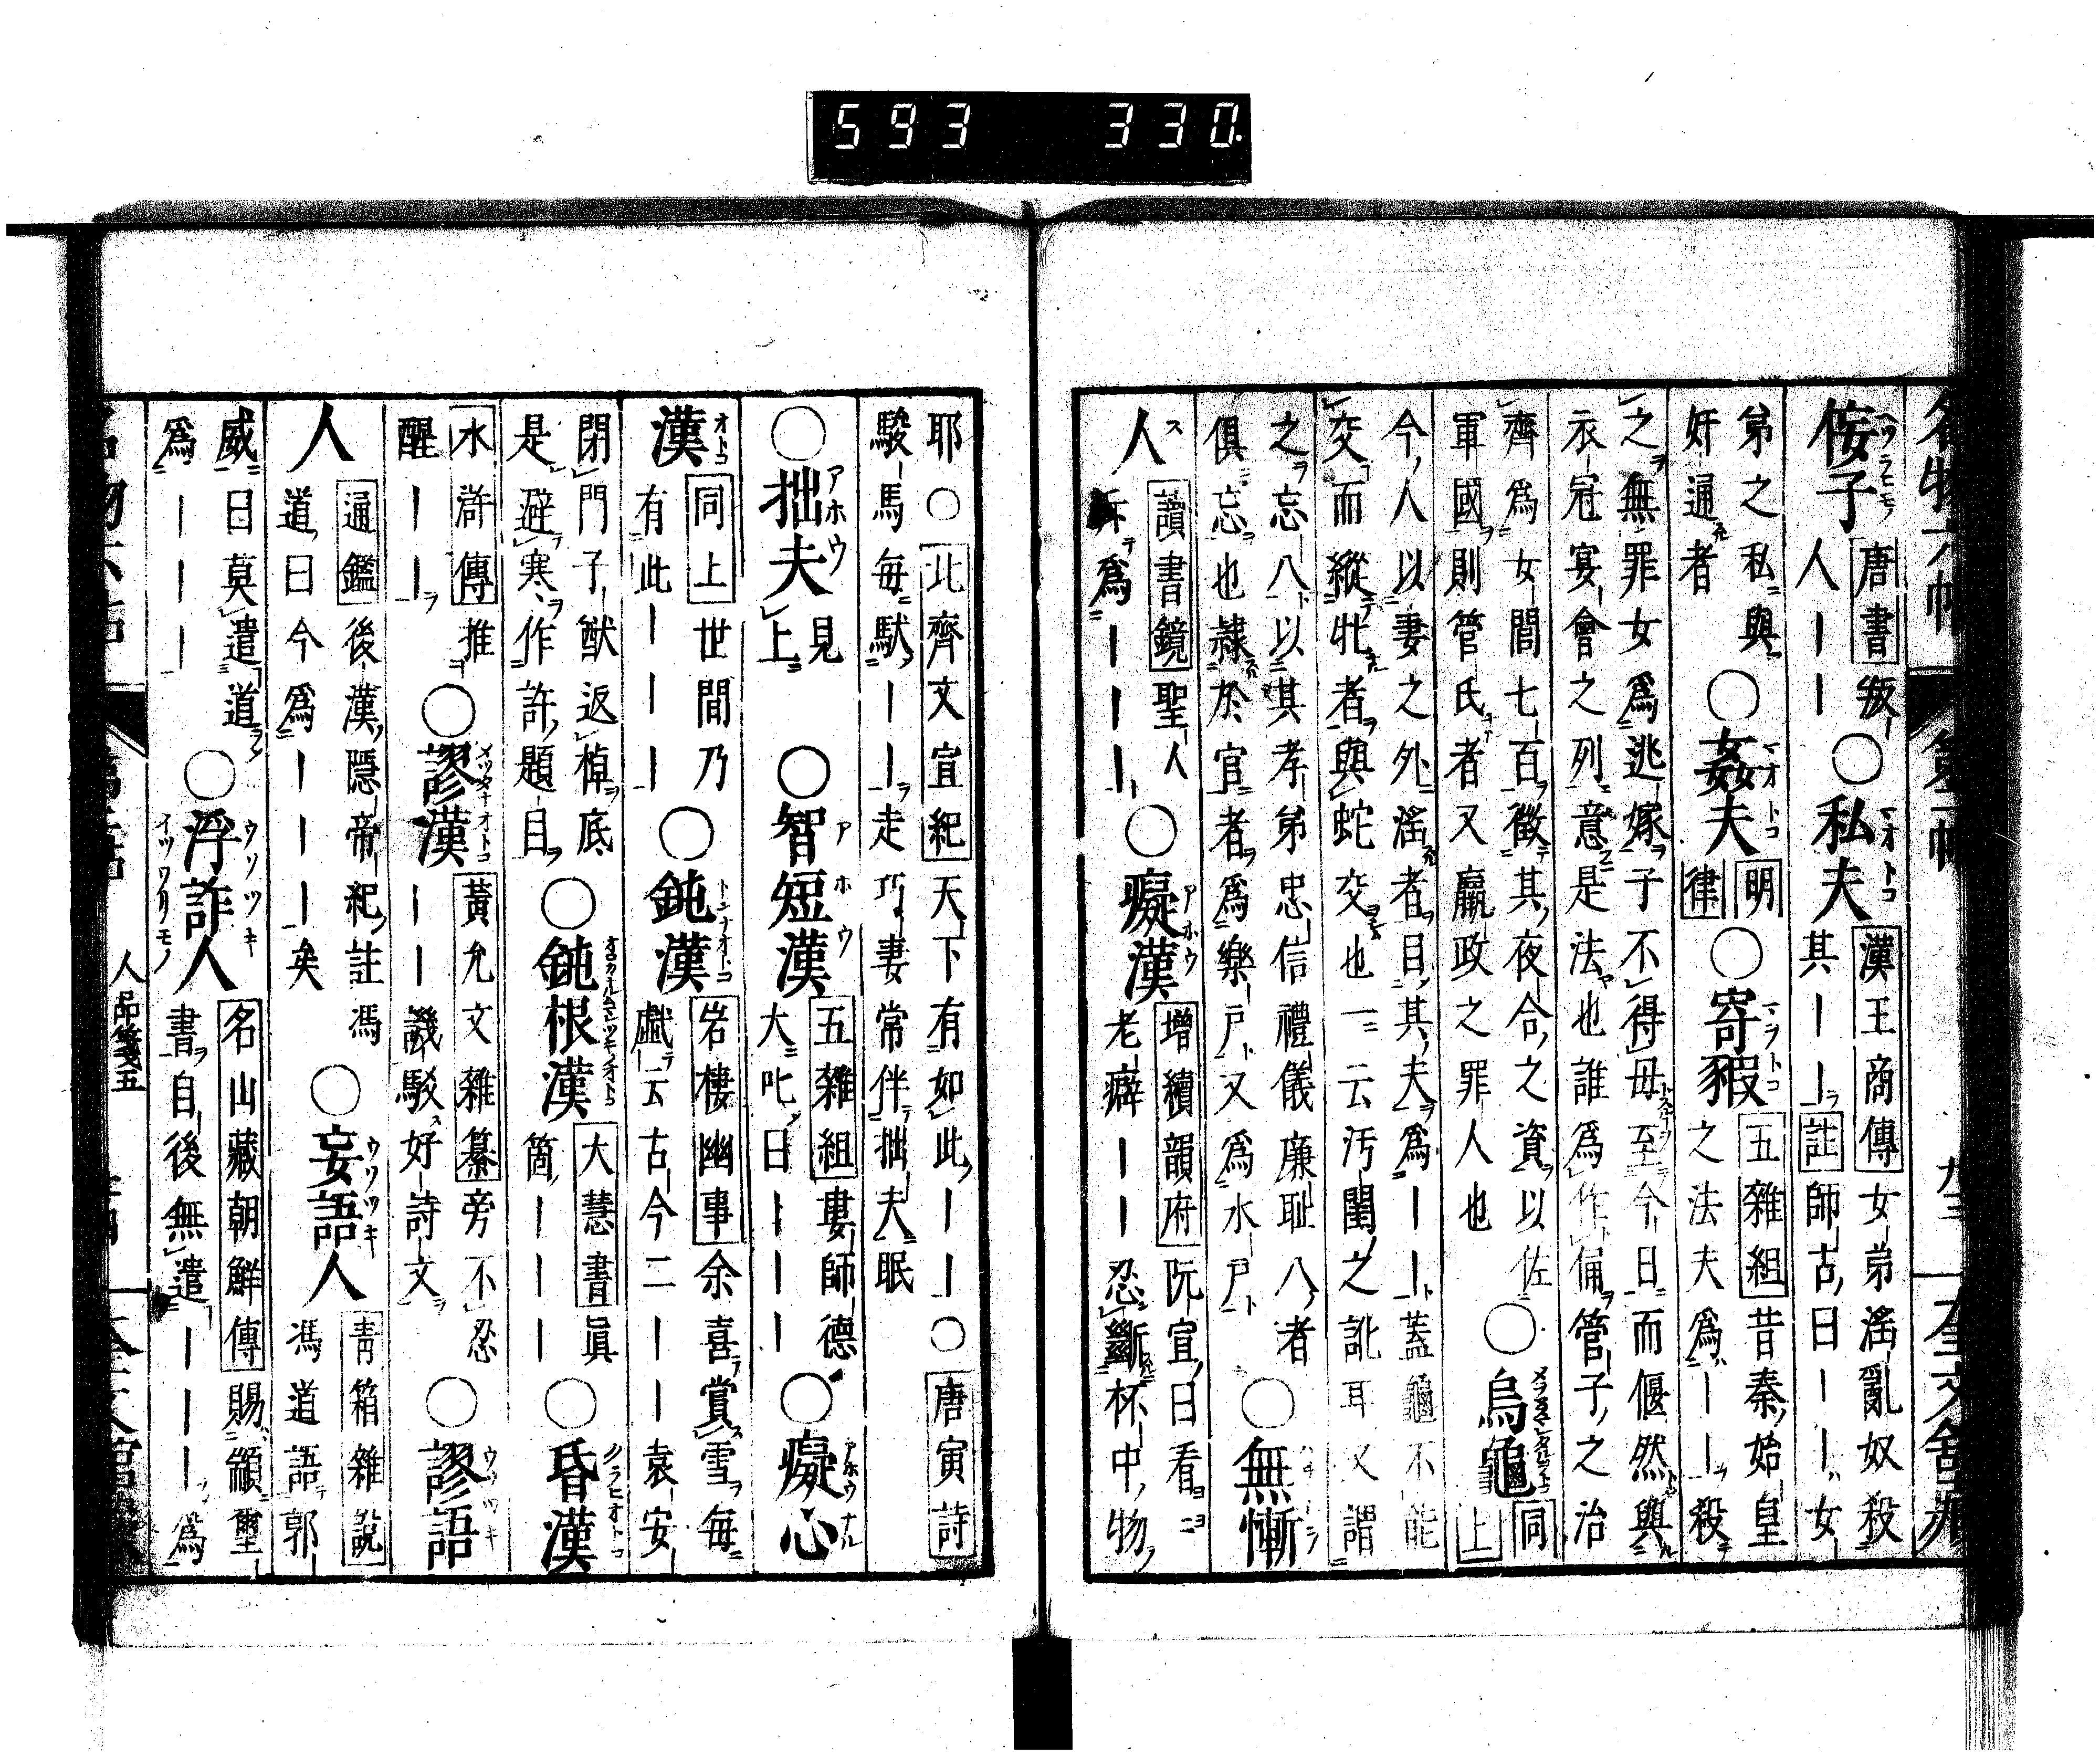 593 330
侫子 唐書叛
人｜｜○私夫 漢王商傳女弟滛亂奴殺
其｜｜註師古曰｜｜女
弟之私與
奸通者○姦夫 明
律○寄豭 五雜組昔秦始皇
之法夫爲｜｜殺
之無罪女爲逃嫁子不得母至今日而偃然與
衣冠宴會之列意是法也誰爲作俑管子之治
齊爲女閭七百徵其夜合之資以佐
軍國則管氏者又嬴政之罪人也○烏龜 同
上
今人以妻之外滛者目其夫爲｜｜蓋龜不能
交而縱牝者與蛇交也一云汚閨之訛耳又謂
之忘八以其孝弟忠信禮儀廉耻八者
俱忘也隷於官者爲樂戸又爲水戸○無慚
人 讀書鏡聖人
斥爲｜｜｜○癡漢 增續韻府阮宣曰看
老癖｜｜忍斷杯中物
耶○北齊文宣紀天下有如此｜｜○唐寅詩
駿馬每馱｜｜走巧妻常伴拙夫眠
○拙夫 見
上○智短漢 五雜組婁師德
大叱曰｜｜｜○癡心
漢 同上世間乃
有此｜｜｜○鈍漢 岩棲幽事余喜賞雪每
戯云古今二｜｜袁安
閉門子猷返棹底
是避寒作許題目○鈍根漢 大慧書眞
箇｜｜｜○昏漢
水滸傳推
醒｜｜○謬漢 黃允文雜纂旁不忍
｜｜譏駁好詩文○謬語
人 通鑑後漢隱帝紀註馮
道曰今爲｜｜｜矣○妄語人 靑箱雜說
馮道語郭
威曰莫遣道
爲｜｜｜○浮詐人 名山藏朝鮮傳賜額璽
書自後無遣｜｜｜爲
人品箋五